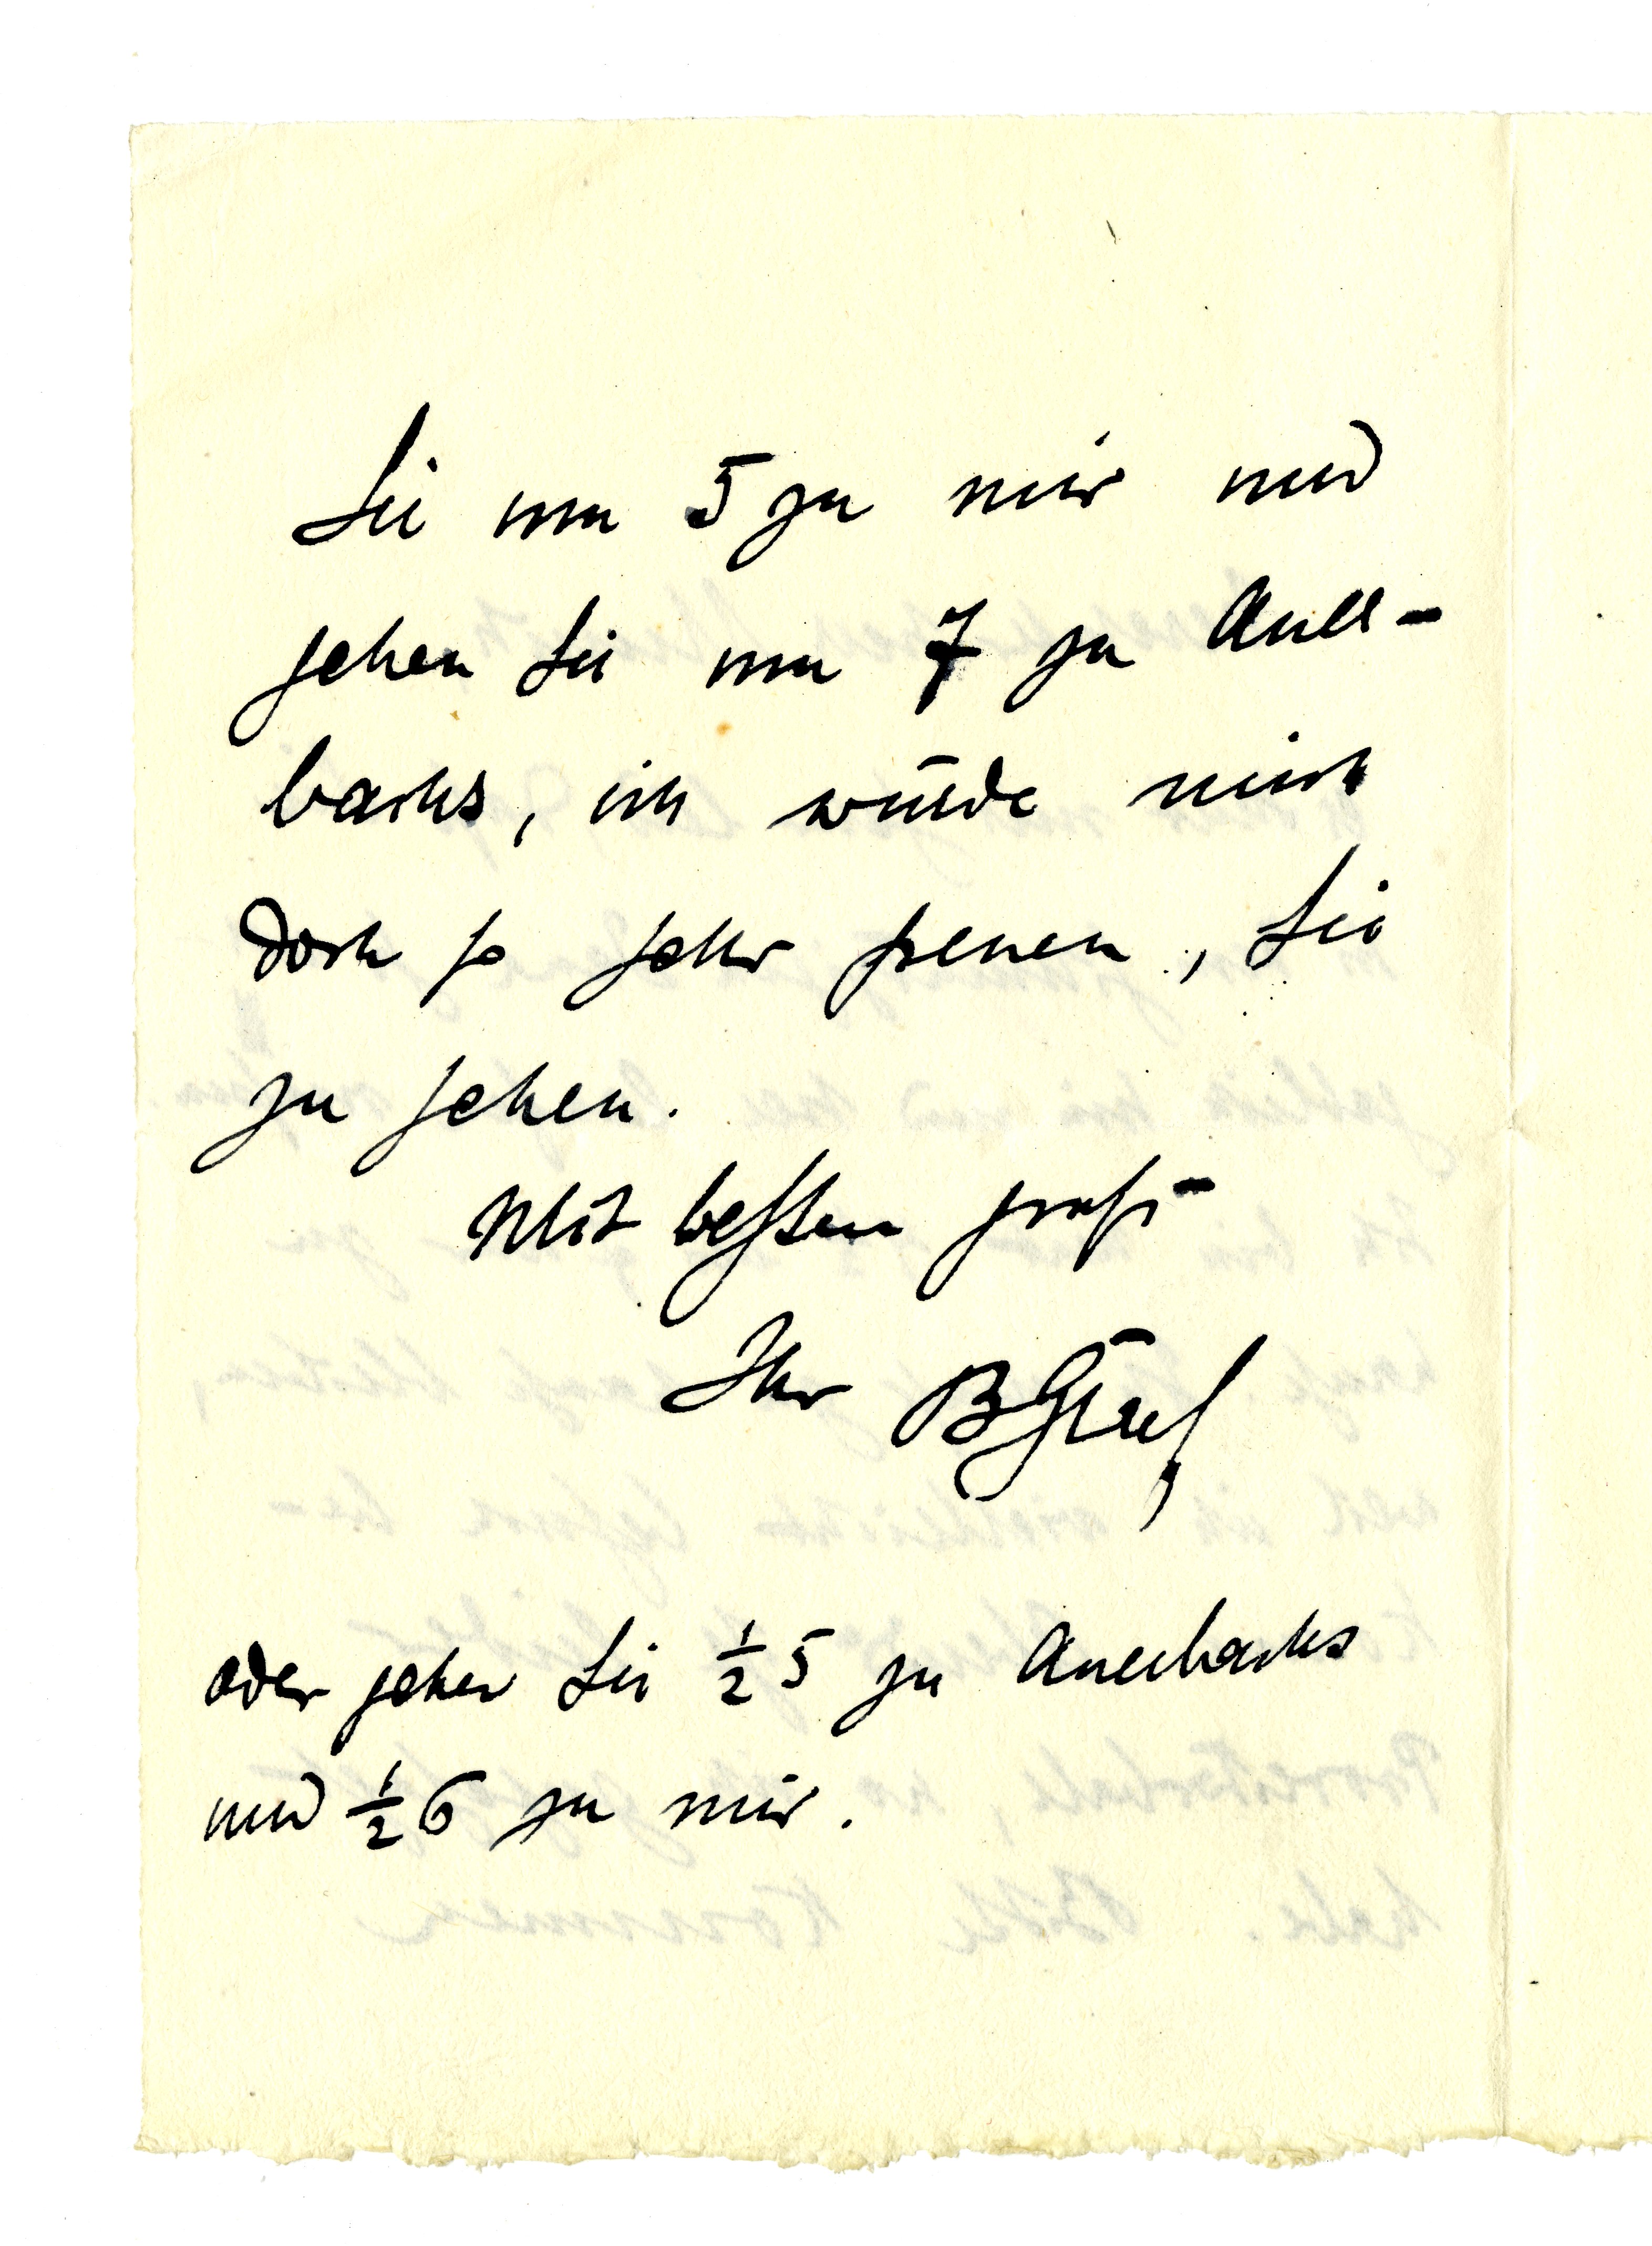 Sie um 5 zu mir und
gehen Sie um 7 zu Auer-
bachs, ich würde mich
doch so sehr freuen, Sie
zu sehen.
Mit besten Gruß
Ihr BGräf
oder gehen Sie ½ 5 zu Auerbachs
und ½ 6 zu mir.